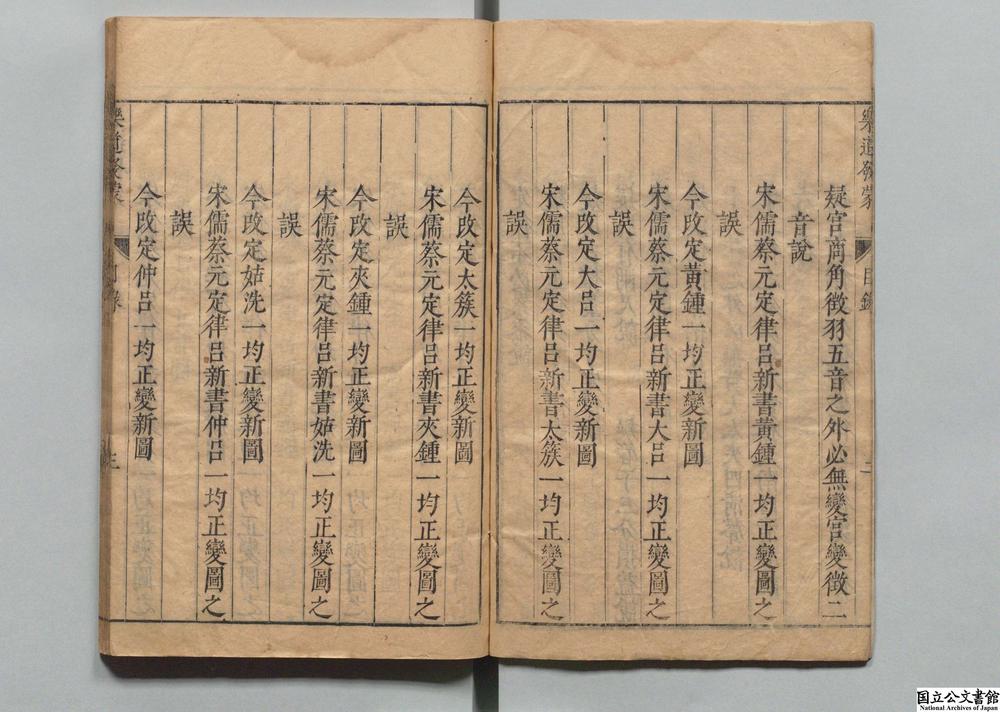 樂道發蒙 目錄
疑宫商角徵羽五音之外必無變宮變徵二
音說
宋儒蔡元定律呂新書黃鍾一均正變圖之
誤
今改定黃鍾一均正變新圖
宋儒蔡元定律呂新書大呂一均正變圖之
誤
今改定大呂一均正變新圖
宋儒蔡元定律呂新書太簇一均正變圖之
誤
今改定太簇一均正變新圖
宋儒蔡元定律呂新書夾鍾一均正變圖之
誤
今改定夾鍾一均正變新圖
宋儒蔡元定律呂新書姑洗一均正變圖之
誤
今改定姑洗一均正變新圖
宋儒蔡元定律呂新書仲呂一均正變圖之
誤
今改定仲呂一均正變新圖
樂道發蒙 目錄
国立公文書館
National Archives of Japan